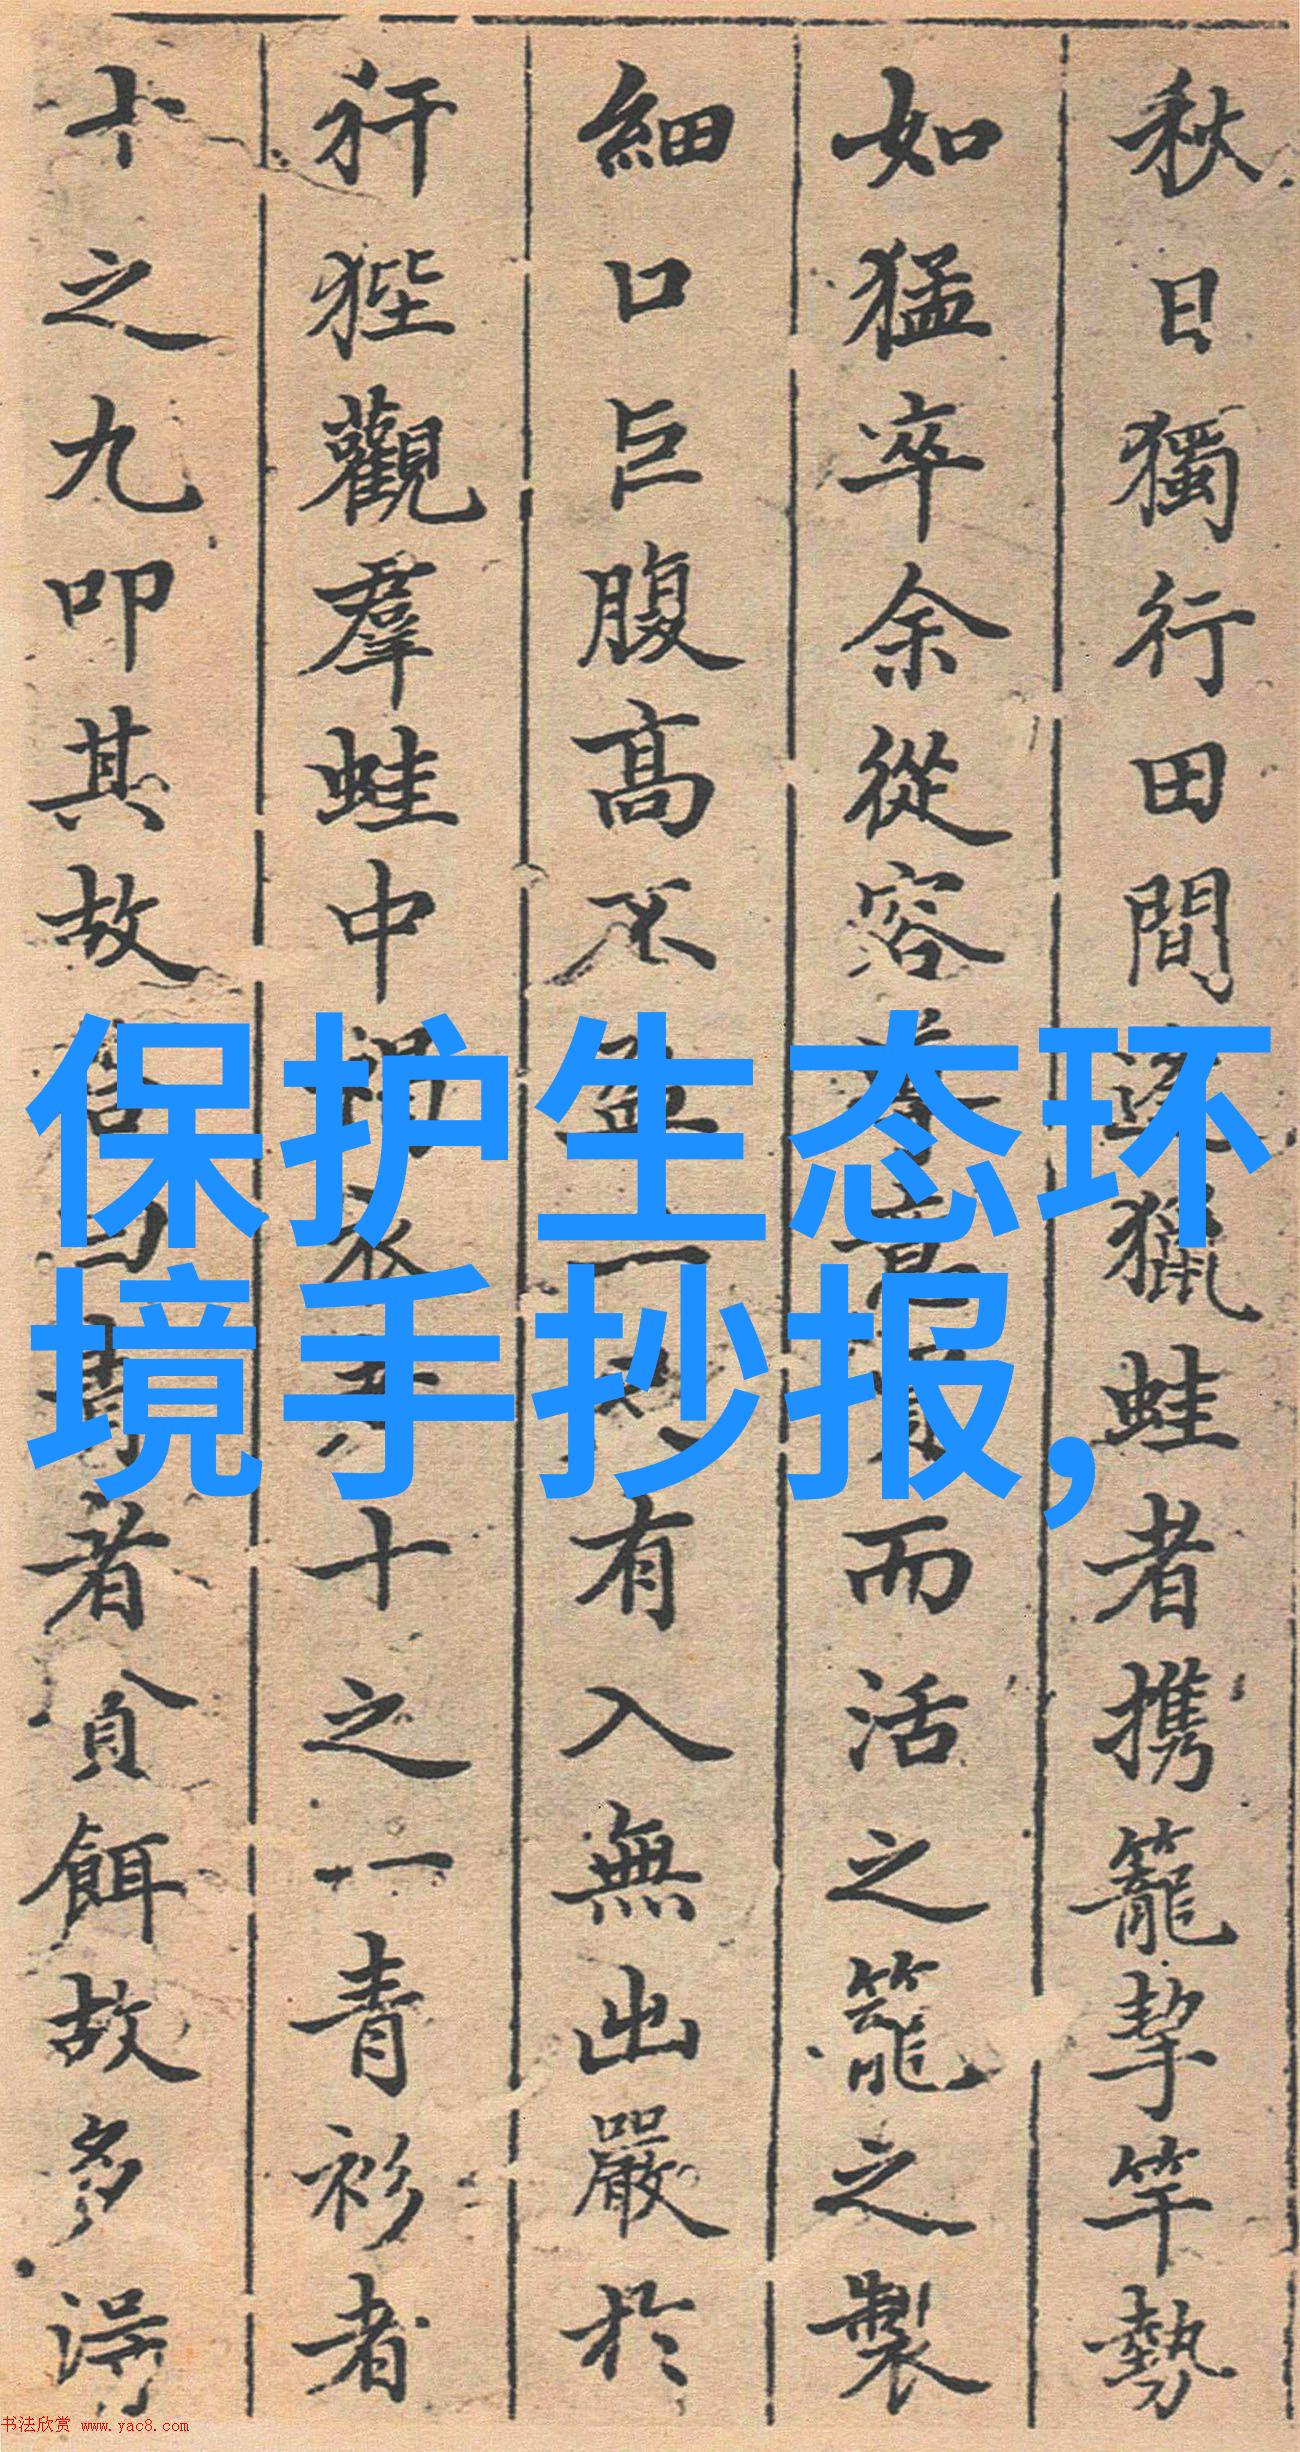 秋日獨行田間逢獵蛙者携籠挈竿勢
如猛卒余從容而活之籠之製
細口巨腹高不盈一尺有入無出嚴於
犴狴觀羣蛙中褐衣者十之一青衫者
十之九叩其故答曰青者貪餌故多得
保护生态环
境手抄报，
书法欣赏 www.yac8.com